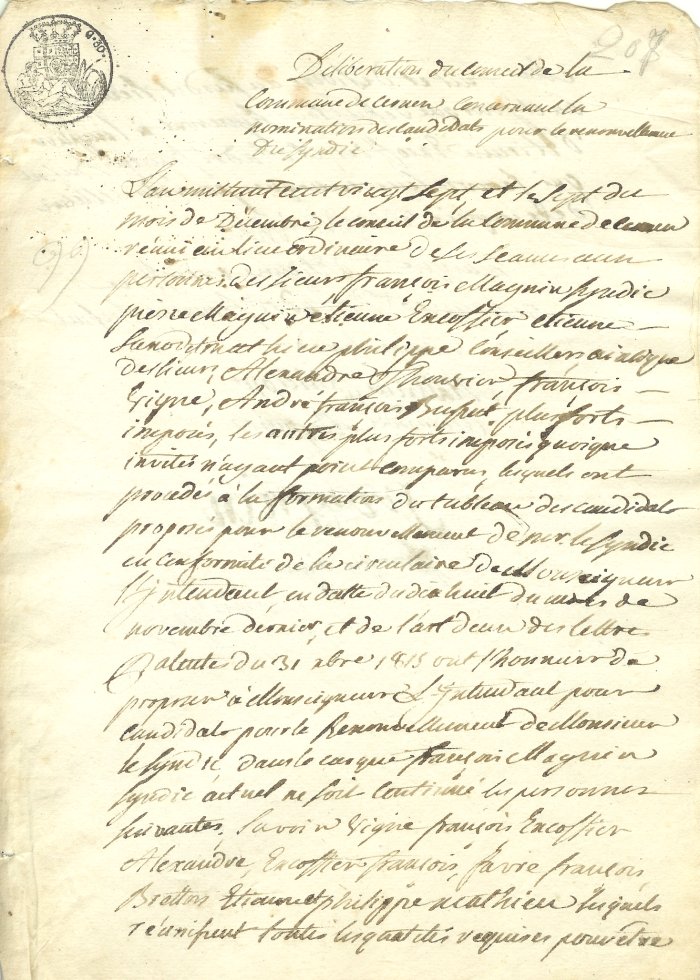 207
Déliberation du conseil de la
Commune de cernex Concernant la
nomination des Candidats pour le renouvellement
Du Syndic
L'an mil huit cent vingt Sept, et le Sept du
mois de Décembre, le conseil de la Commune de cernex
réuni au lieu ordinaire de ses seances aux
personnes des Sieurs françois Magnin Syndic
pierre Magnin etienne Encoffier etienne
philippe Conseillers,
des Sieurs, Alexandre françois
Vigne, André françois Buffet, plus forts
imposés, les autres plus forts imposés quoique
invités n'ayant point comparus, lesquels ont
procédés à la formation du tableau des candidats
proposés pour le renouvellement de mr. le Syndic
en conformité de la circulaire de Monseigneur
L'Jntendant, en datte du dix huit du mois de
novembre dernier, et de l'art deux des lettres
Patentes du 31 xbre 1815 ont l'honneur de
proposer à Monseigneur L'Jntendant pour
candidats pour le Renouvellement de Monsieur
le Syndic dans le cas que françois Magnin
Syndic actuel ne soit Continué les personnes
suivantes, Savoir Vigne françois Encoffier
Alexandre, Encoffier françois, favre françois
Etienne et philippe mathieu lesquels
réunissent toutes les qualités requises pour être